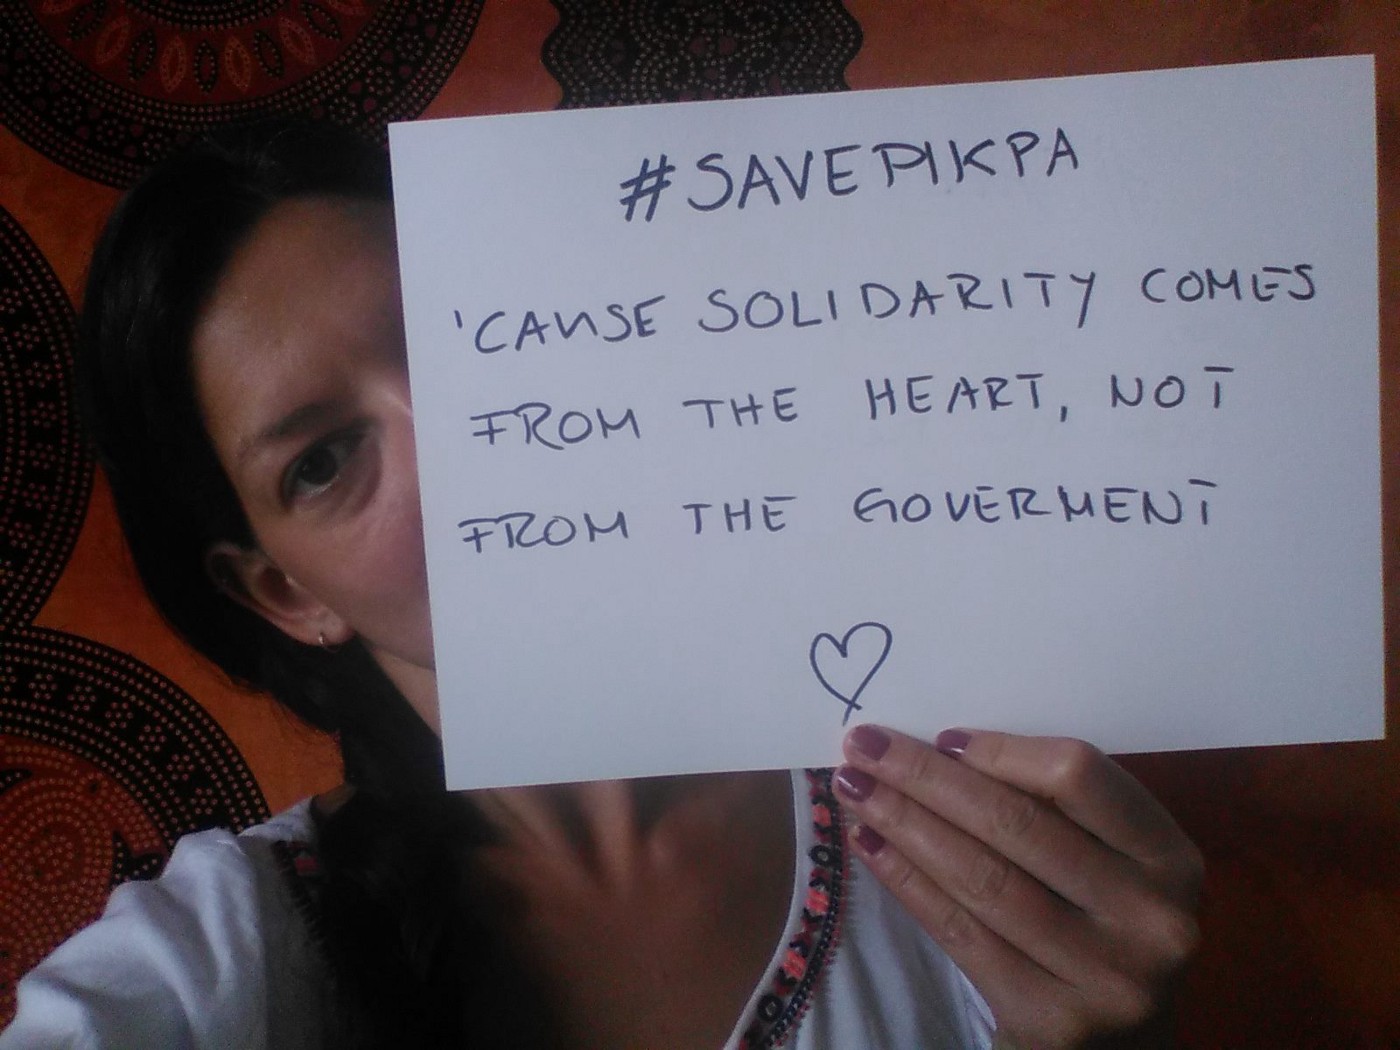 #SAVEPIKPA
'CAUSE SOLIDARITY COMES
FROM THE HEART, NOT
FROM THE GOVERMENT